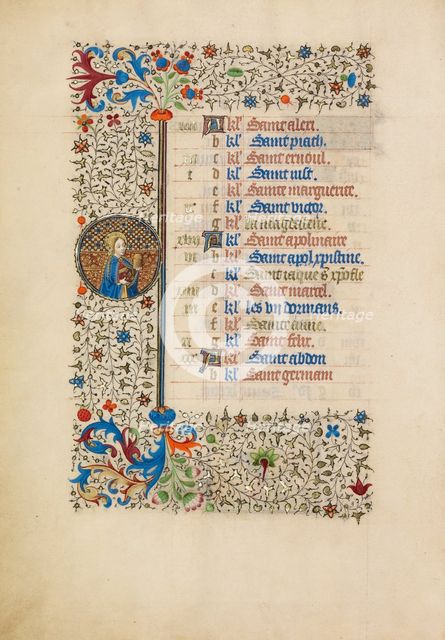 A kl' Saint alexi.
b kl' Saint piath.
c kl' Saint ernoul.
d kl' Saint iust.
e kl' Sainte marguerite.
f kl' Saint victor.
g kl' la magdeleine.
A kl' Saint apolinaire
b kl' Saint apol xpistine
c kl' Saint iaque s' xpofle
d kl' Saint marcel.
e kl' les vij dormans.
f kl' Sainte anne.
g kl' Saint felix.
A kl' Saint abdon
b kl' Saint germain